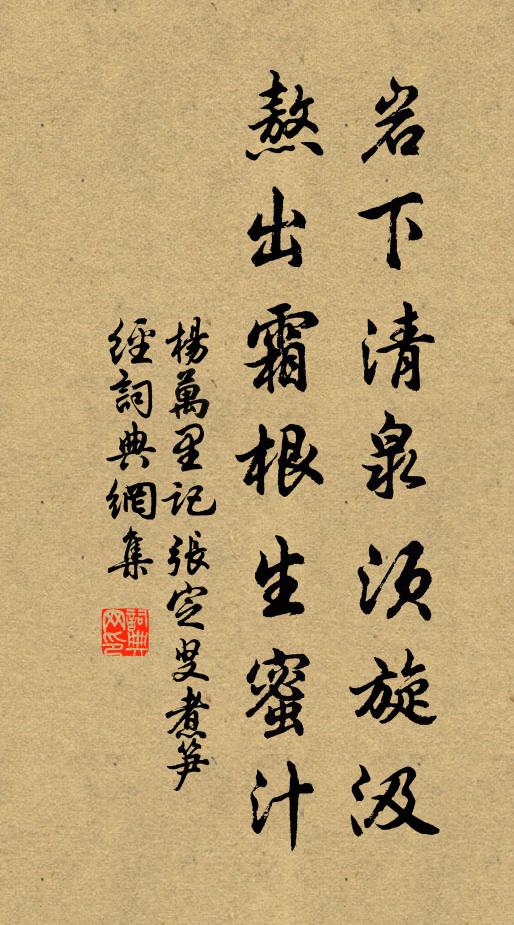 岩下清泉須旋汲
熬出霜根生蜜汁
楊萬里記張定叟煮笋
經詞典網集
詞典網印